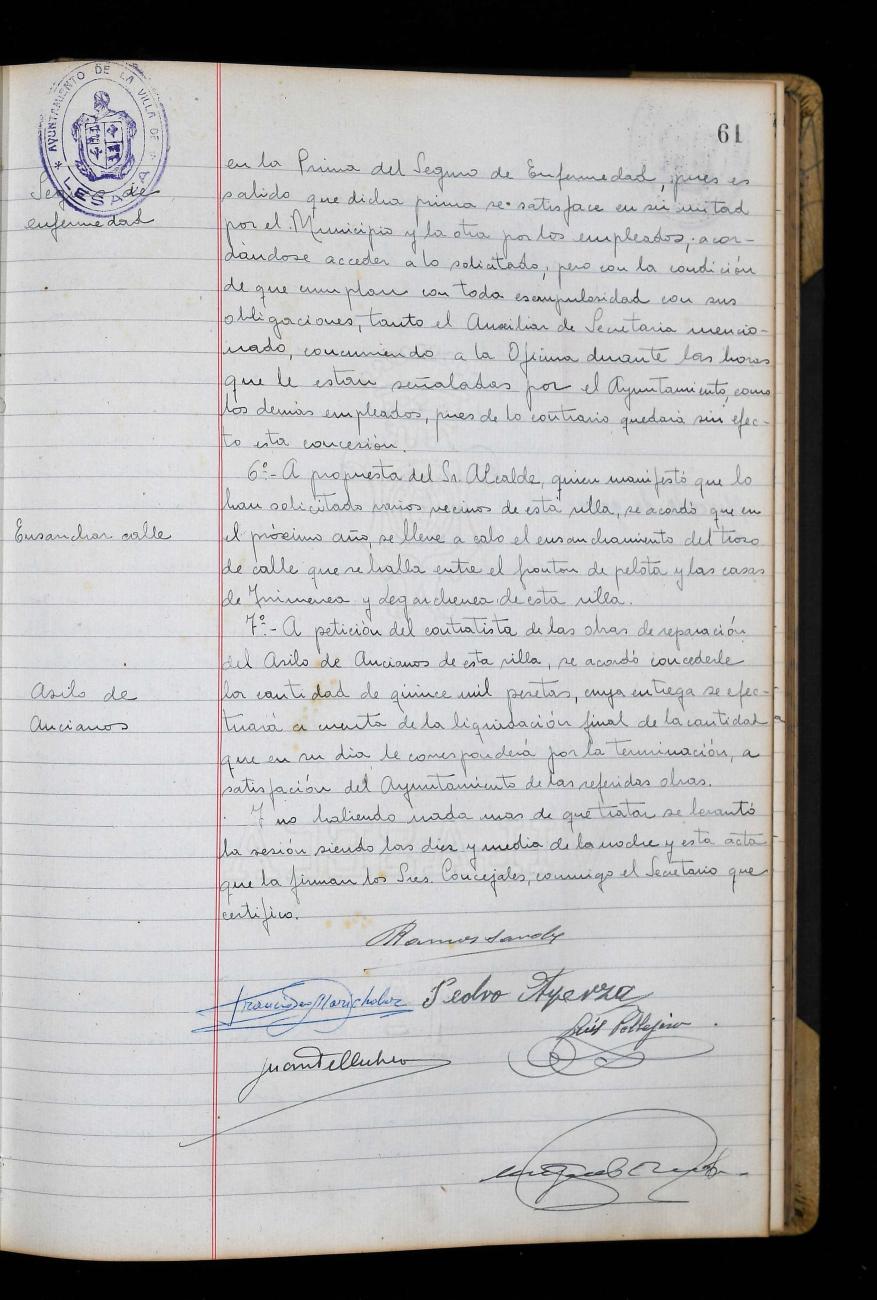 AYUNTAMIENTO DE LA VILLA DE
LESACA
61
Seguro de
enfermedad
en la Prima del Seguro de Enfermedad, pues es
salido que dicha prima se satisface en su mitad
por el Municipio y la otra por los empleados, acor-
dándose acceder a lo solicitado, pero con la condición
de que cumplan con toda escrupulosidad con sus
obligaciones, tanto el Auxiliar de Secretaria mencio-
nado, concurriendo a la Oficina durante las horas
que le estan señaladas por el Ayuntamiento, como
los demás empleados, pues de lo contrario quedará sin efec-
to esta concesión.
6º.- A propuesta del Sr. Alcalde, quien manifestó que lo
han solicitado varios vecinos de esta villa, se acordó que en
Ensanchar calle
el próximo año, se lleve a cabo el ensanchamiento del trozo
de calle que se halla entre el fronton de pelota y las casas
de y de esta villa.
7º.- A petición del contratista de las obras de reparación
del Asilo de Ancianos de esta villa, se acordó concederle
Asilo de
Ancianos
la cantidad de quince mil pesetas, cuya entrega se efec-
tuará a cuenta de la liquidación final de la cantidad
que en su dia le corresponderá por la terminación, a
satisfación del Ayuntamiento de las referidas obras.
Y no habiendo nada mas de que tratar se levantó
la sesión siendo las diez y media de la noche y esta acta
que la firman los Sres. Concejales, conmigo el Secretario que
certifico.
Ramos
Francisco Marichalar
Pedro Ayerza
Luis
Juan Tellechea
Miguel